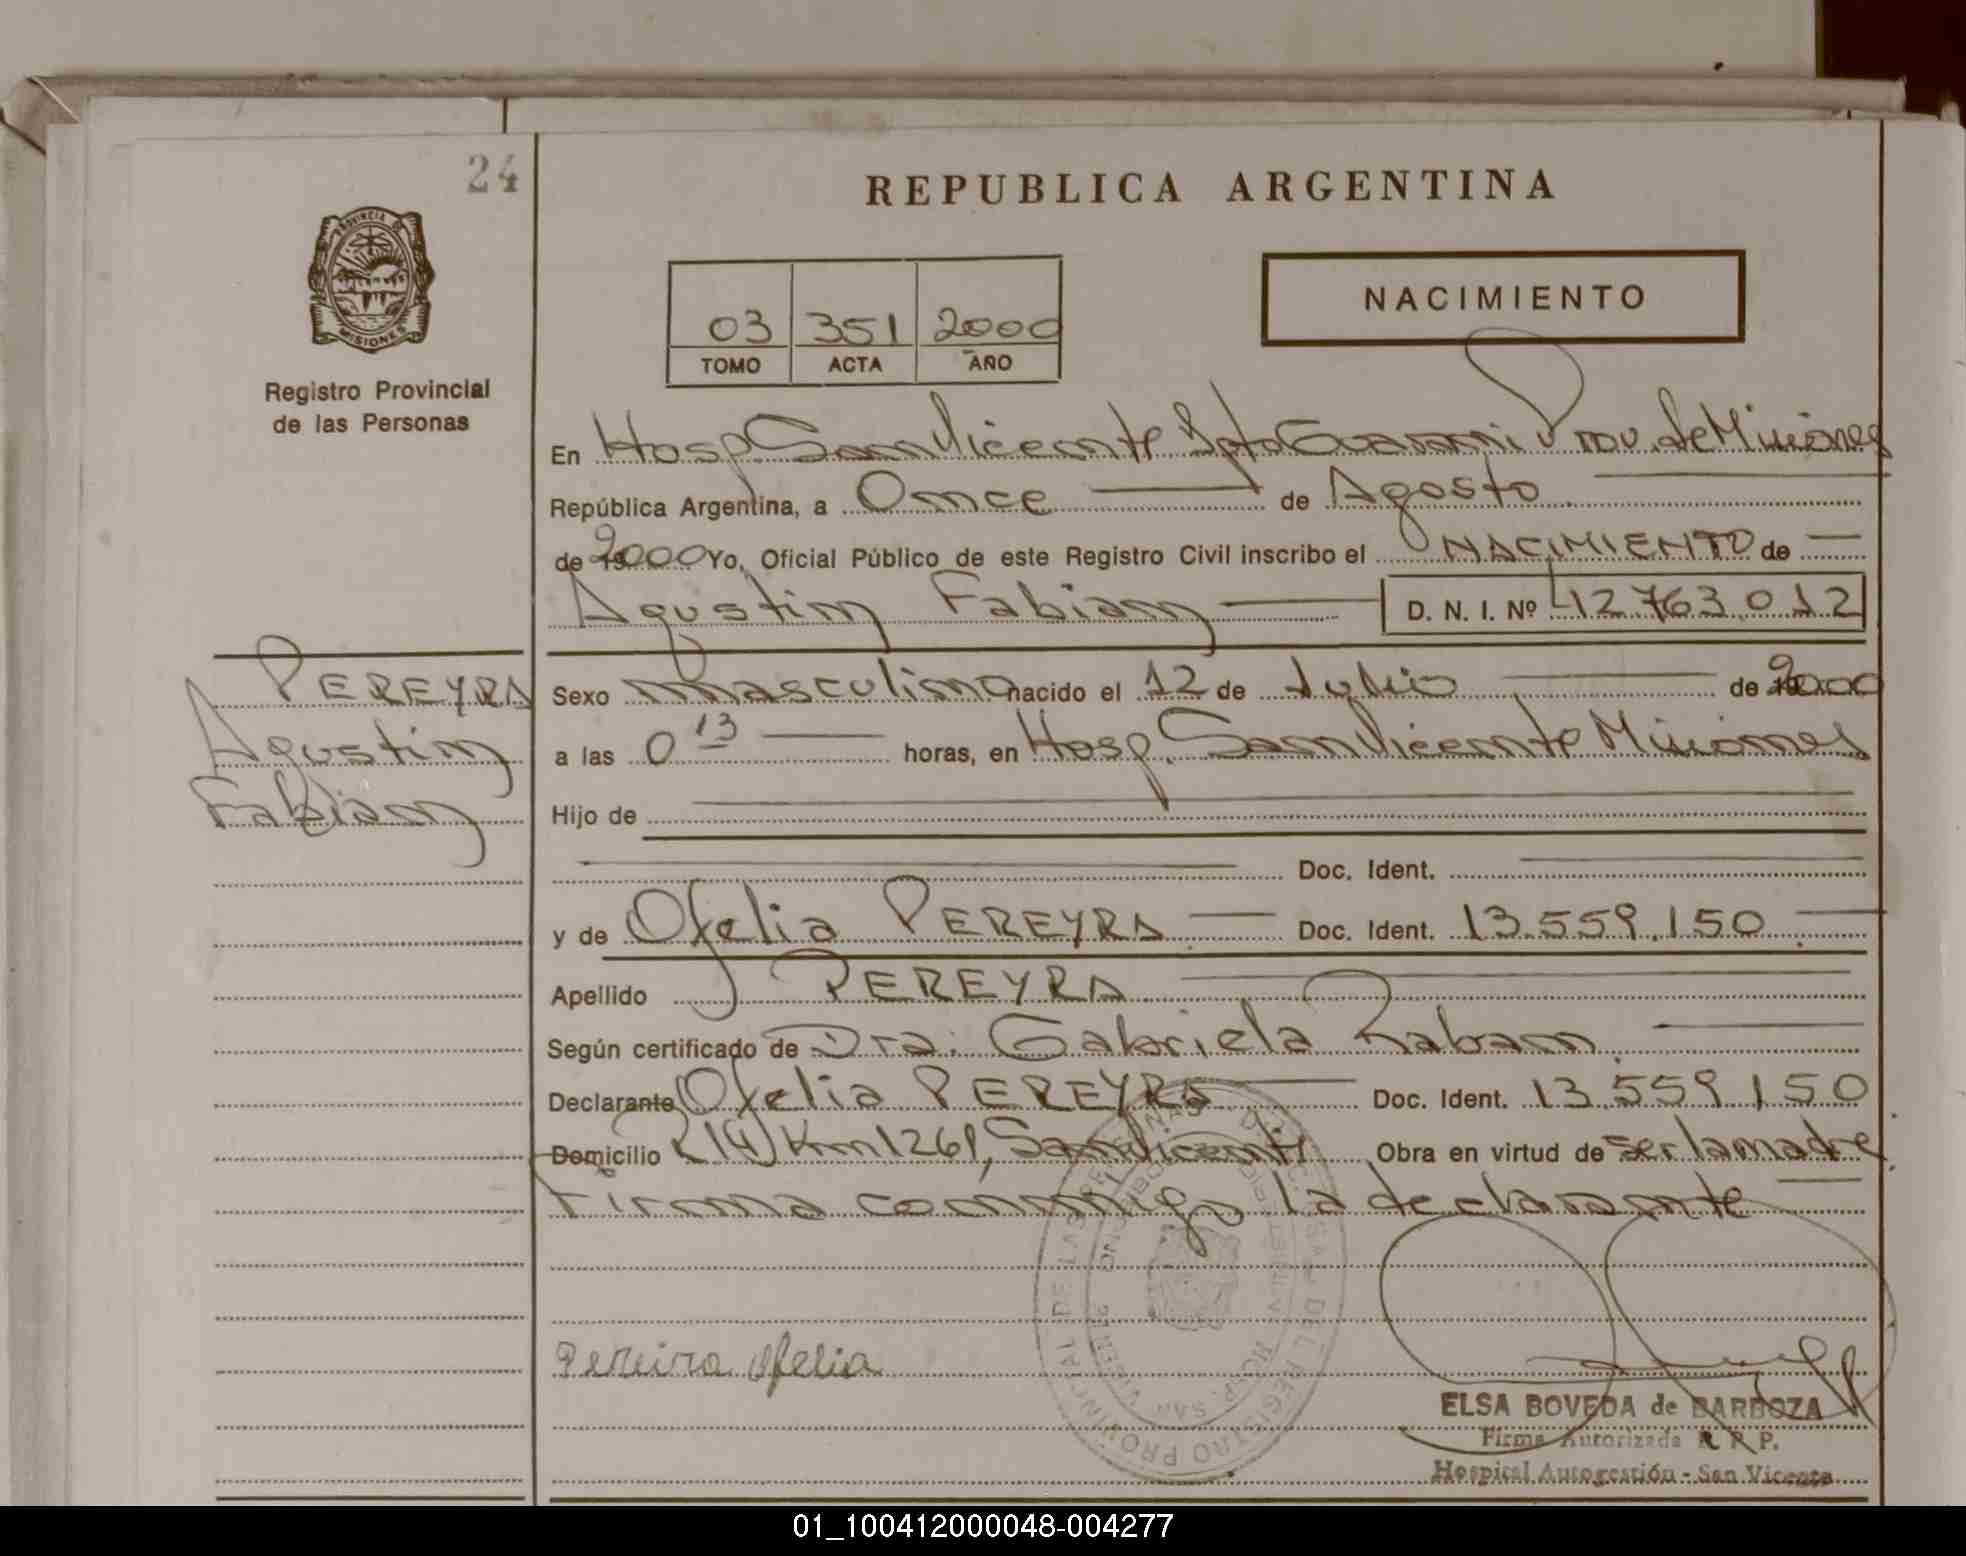 24
REPUBLICA ARGENTINA
PROVINCIA DE
MISIONES
Registro Provincial
de las Personas
03 351 2000
TOMO ACTA AÑO
NACIMIENTO
En Hosp San Vicente Dpto Guarani Prov. de Misiones
República Argentina, a Once de Agosto
de 2000 Yo, Oficial Público de este Registro Civil inscribo el NACIMIENTO de
Agustin Fabian D. N. I. Nº 42.763.012
PEREYRA
Agustin
Fabian
Sexo masculino nacido el 12 de Julio de 2000
a las 0 13 horas, en Hosp. San Vicente Misiones
Hijo de
Doc. Ident.
y de Ofelia PEREYRA Doc. Ident. 13.559.150
Apellido PEREYRA
Según certificado de Dra. Gabriela Raban
Declarante Ofelia PEREYRA Doc. Ident. 13.559.150
Domicilio R14 Km 1261, San Vicente Obra en virtud de ser la madre
Firma conmigo la declarante
Pereira Ofelia
ELSA BOVEDA de BARBOZA
Firma Autorizada R. P. P.
Hospital Autogestión - San Vicente
01_100412000048-004277